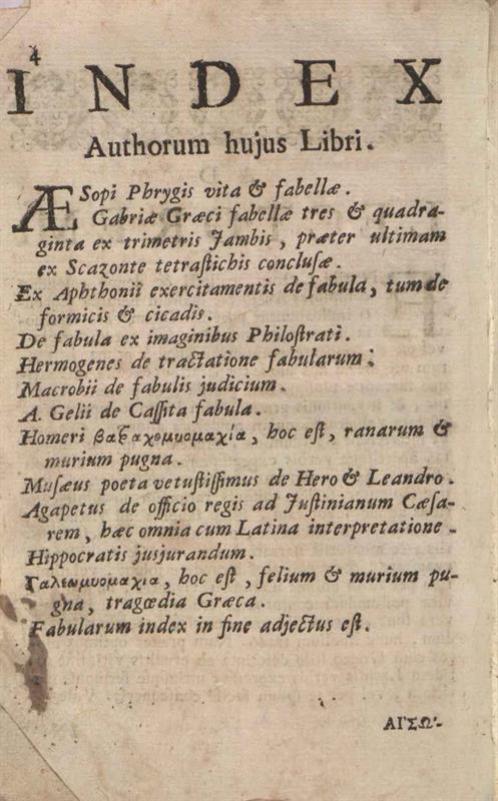 4
INDEX
Authorum hujus Libri.
ÆSopi Phrygis vita & fabellæ.
Gabriæ Græci fabellæ tres & quadra-
ginta ex trimetris Jambis, præter ultimam
ex Scazonte tetraſtichis concluſæ.
Ex Aphthonii exercitamentis de fabula, tum de
formicis & cicadis.
De fabula ex imaginibus Philoſtrati.
Hermogenes de tractatione fabularum.
Macrobii de fabulis judicium.
A. Gelii de Caſſita fabula.
Homeri βατραχομυομαχία, hoc eſt, ranarum &
murium pugna.
Muſæus poeta vetuſtiſſimus de Hero & Leandro.
Agapetus de officio regis ad Juſtinianum Cæſa-
rem, hæc omnia cum Latina interpretatione.
Hippocratis jusjurandum.
Γαλεωμυομαχια, hoc eſt, felium & murium pu-
gna, tragœdia Græca.
Fabularum index in fine adjectus eſt.
ΑΙΣΩ'-